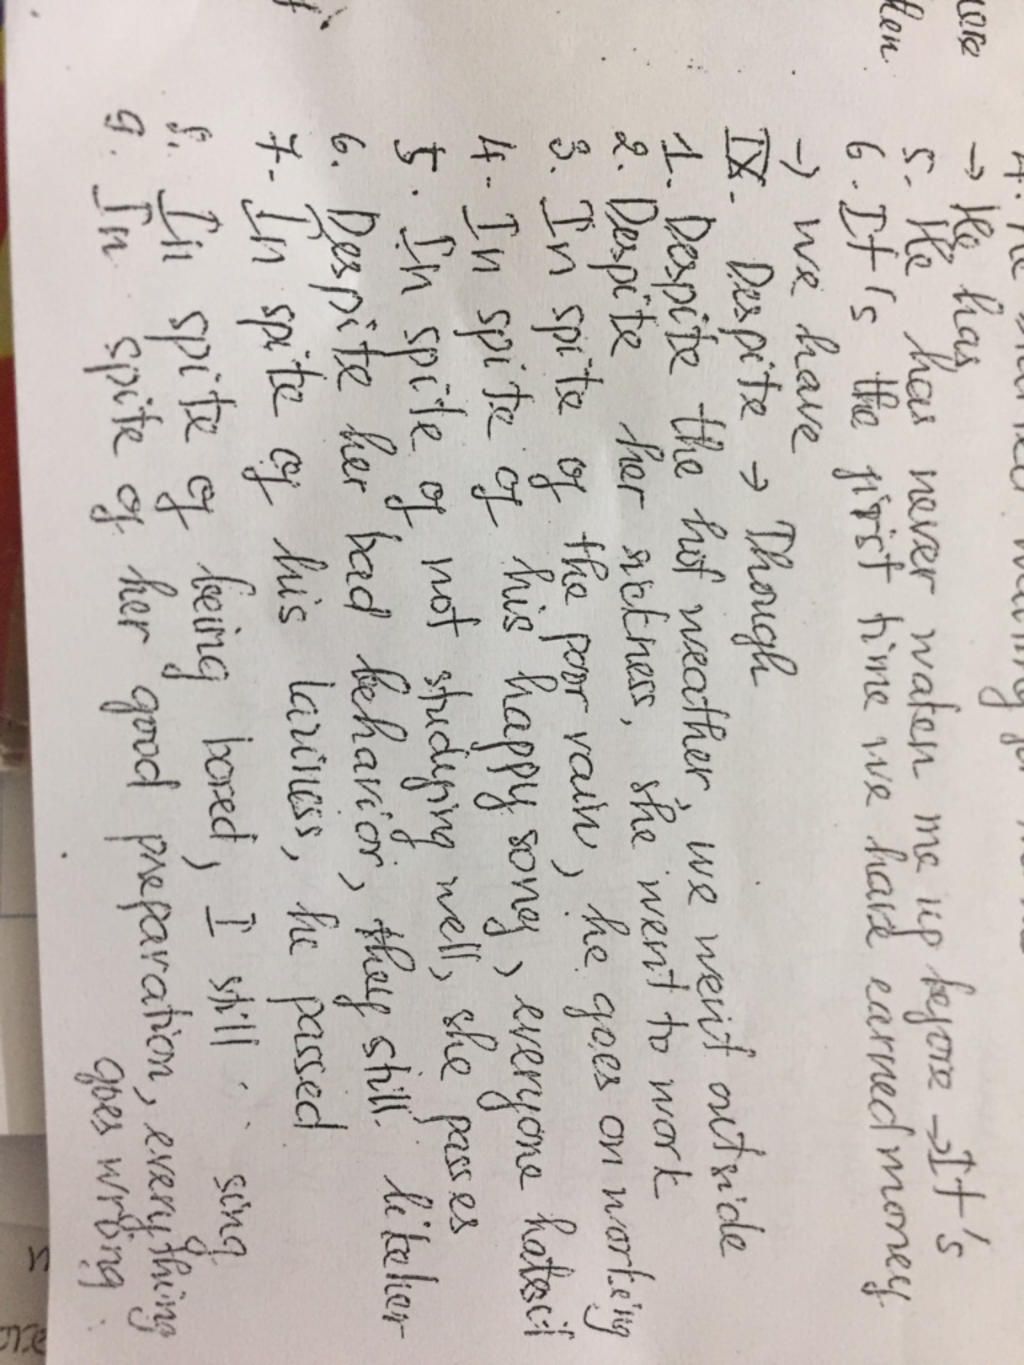 → He has
5. He has never waten me up before → It's
6. It's the first time we have earned money
→ we have
IX. Despite → Though
1. Despite the hot weather, we went outside
2. Despite her sickness, she went to work
3. In spite of the poor rain, he goes on working
4. In spite of his happy song, everyone hates it
5. In spite of not studying well, she passes
6. Despite her bad behavior, they still like her
7. In spite of his laziness, he passed
8. In spite of being bored, I still sing
9. In spite of her good preparation, everything
goes wrong